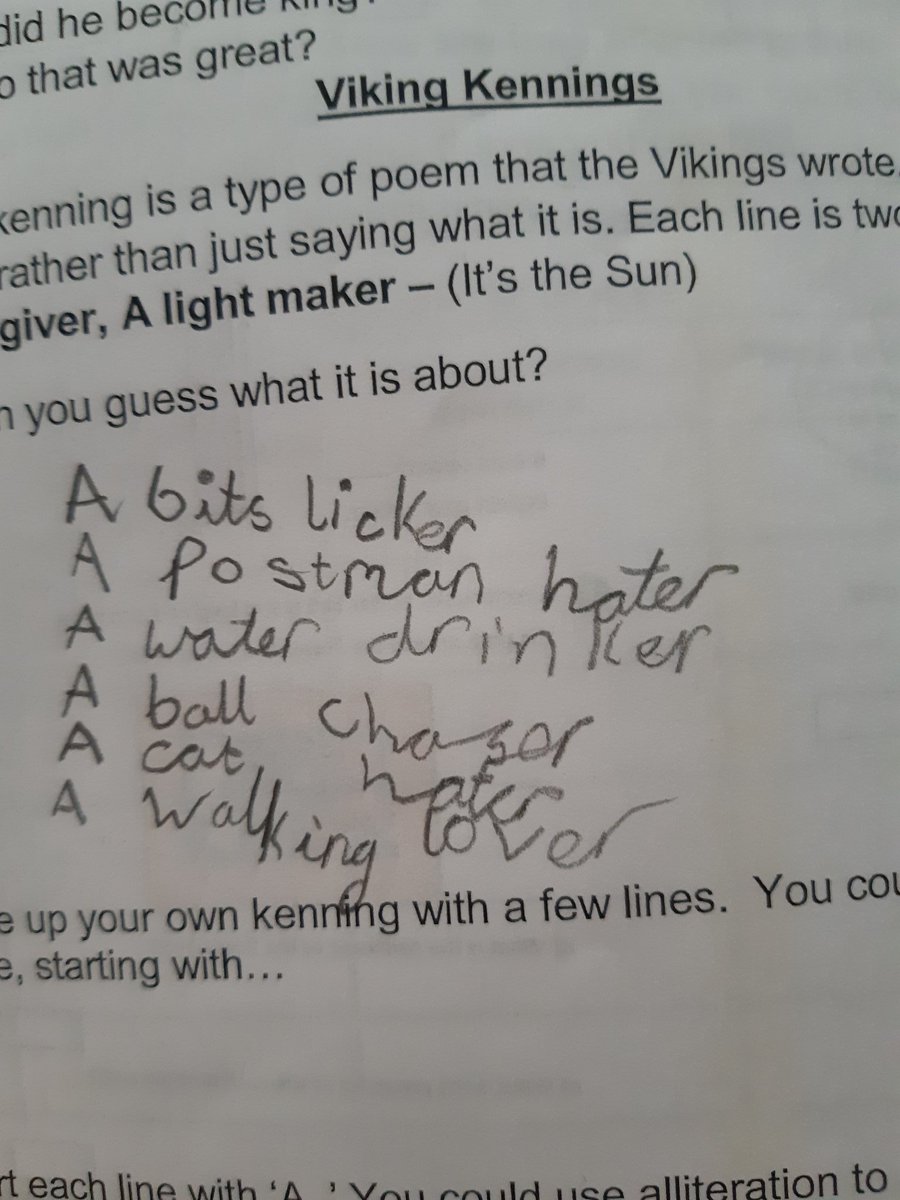 did he become king?
o that was great?
Viking Kennings
kenning is a type of poem that the Vikings wrote.
rather than just saying what it is. Each line is two
giver, A light maker – (It's the Sun)
n you guess what it is about?
A bits licker
A Postman hater
A water drinker
A ball chaser
A cat hater
A walking lover
e up your own kenning with a few lines. You cou
e, starting with...
rt each line with 'A ' You could use alliteration to